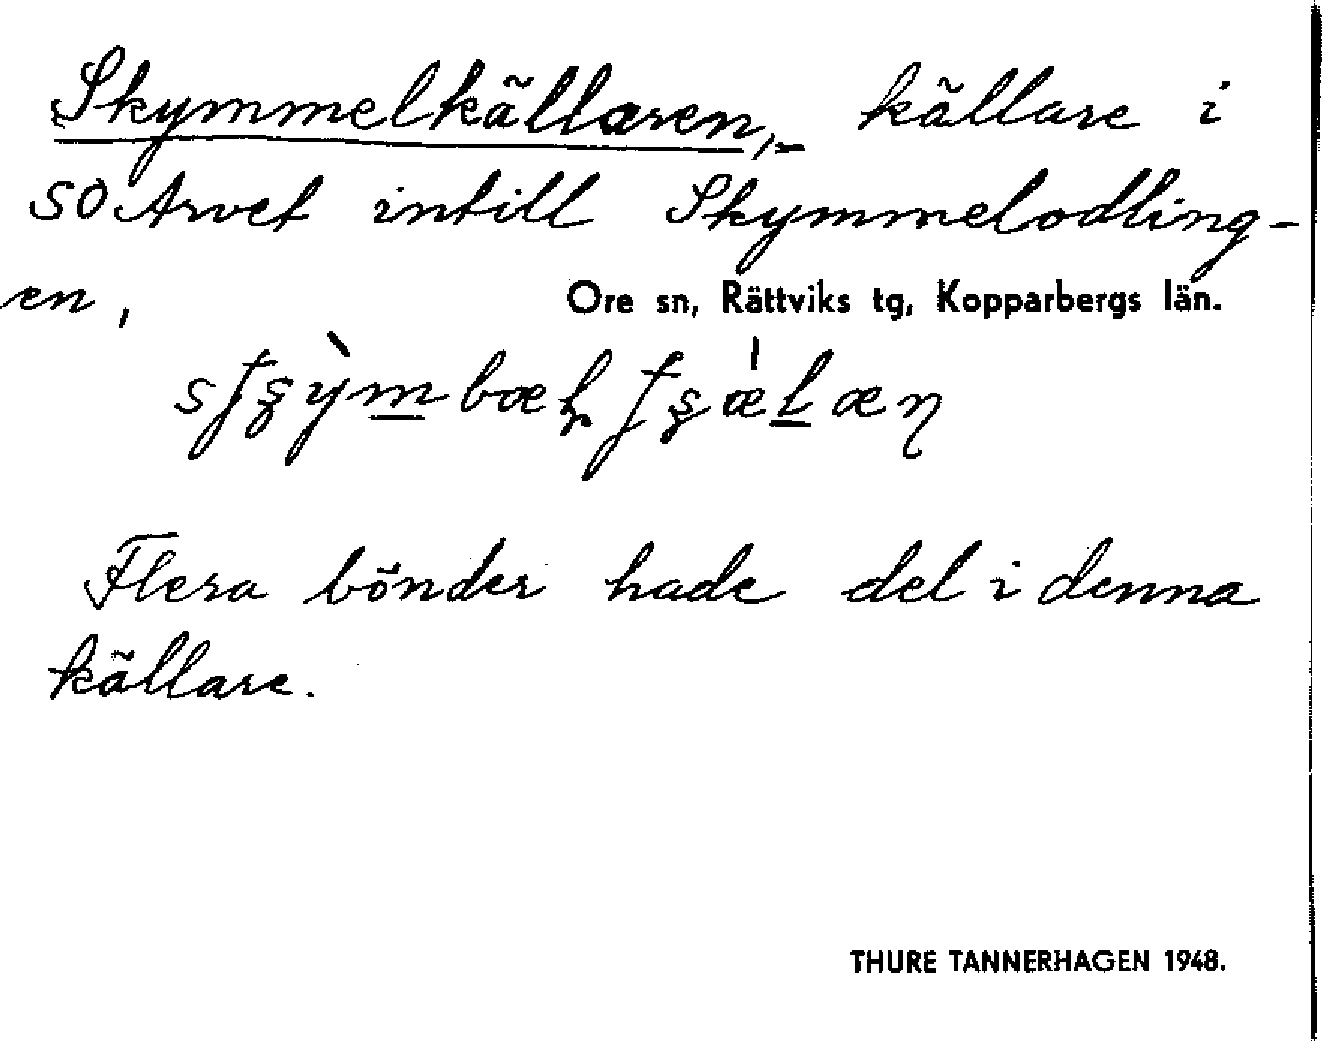 Skymmelkällaren,- källare i
SO Arvet intill Skymmelodling-
en,
Ore sn, Rättviks tg, Kopparbergs län.
Flera bönder hade del i denna
källare.
THURE TANNERHAGEN 1948.